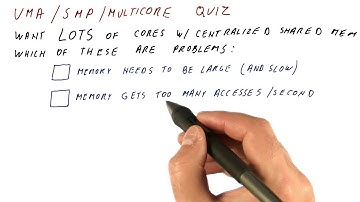 UMA/SMP/MULTICORE QUIZ
WANT LOTS OF CORES W/ CENTRALIZED SHARED MEM
WHICH OF THESE ARE PROBLEMS:
MEMORY NEEDS TO BE LARGE (AND SLOW)
MEMORY GETS TOO MANY ACCESSES/SECOND